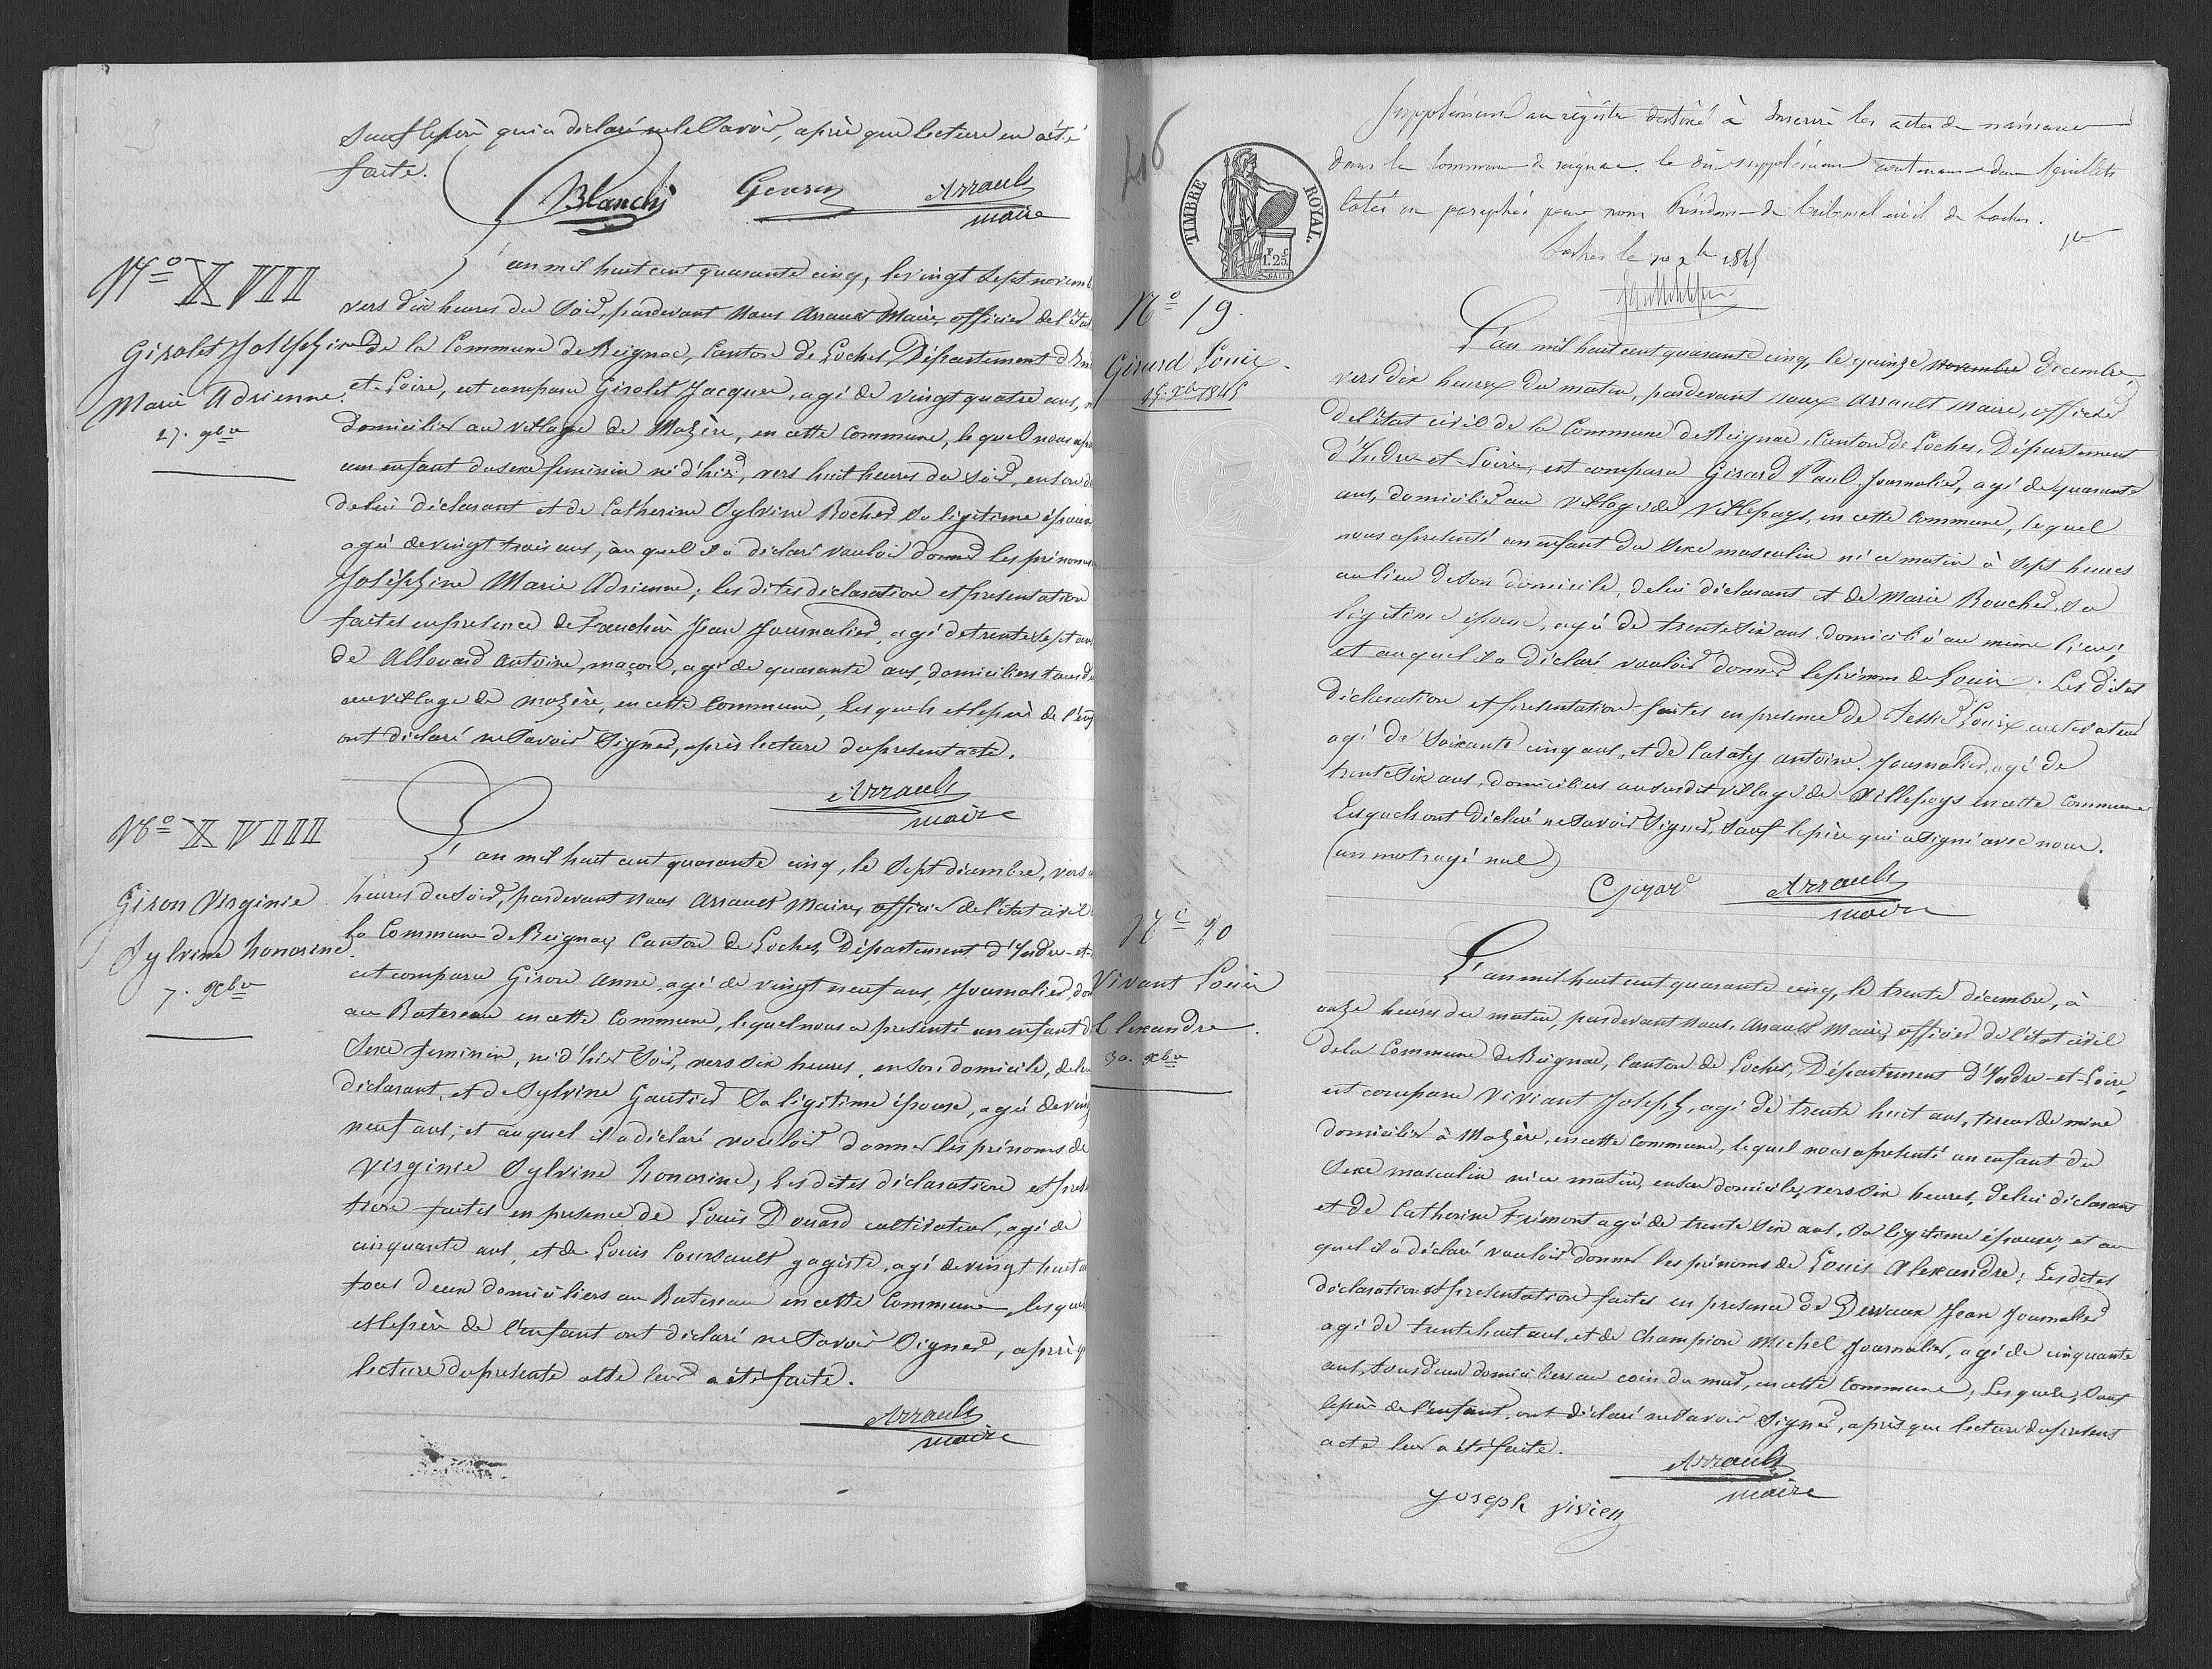 Sauf le père qui a déclaré ne le Savoir, après que lecture en a été
faite.
Blanchi Arrault
maire
N° XVII
Girolet Joséphine
Marie Adrienne.
27. 9bre
L'an mil huit cent quarante cinq, le vingt Sept novemb
vers dix heures du Soir, pardevant Nous Arrault Maire, officier de l'état
de la Commune de Reignac, Canton de Loches, Département d'Ind
et-Loire, est comparu Girolet Jacques, agé de vingt quatre ans,
domicilier au village de Mazère, en cette commune, lequel nous a pre
un enfant du sexe feminin né d'hier, vers huit heures du Soir, en son do
de lui déclarant et de Catherine Sylvine Rocher Sa légitime épouse
agée de vingt trois ans, auquel il a déclaré vouloir donner les prénoms
Joséphine Marie Adrienne; les dites déclaration et présentation
faites en présence de Faucher Jean Journalier, agé de trente Sept ans
de Allouard Antoine, maçon, agé de quarante ans, domiciliers tous d
au village de mazère, en cette Commune, Lesquels et le père de l'enf
ont déclaré ne Savoir Signer, après lecture du présent acte.
Arrault
maire
N° XVIII
Giron Virginie
Sylvine honorine.
7. Xbre
L'an mil huit cent quarante cinq, le Sept décembre, vers
heures du Soir, pardevant Nous Arrault Maire, officier de l'état civil
la Commune de Reignac, Canton de Loches, Département d'Indre-et-
est comparu Giron Anne, agé de vingt neuf ans, Journalier, do
au Batereau en cette Commune, lequel nous a présenté un enfant d
Sexe feminin, né d'hier Soir, vers Six heures, en son domicile, de lui
déclarant, et de Sylvine Gautier Sa légitime épouse, agée de ving
neuf ans, et auquel il a déclaré vouloir donner les prénoms de
Virginie Sylvine honorine; Les dites déclaration et prése
tion faites en présence de Louis Douard cultivateur, agé de
cinquante ans, et de Louis Coursault gagiste, agé de vingt huit a
tous deux domiciliers au Batereau en cette Commune, lesque
et le père de l'enfant ont déclaré ne Savoir Signer, après q
lecture du présente acte leur a été faite.
Arrault
maire
Supplément au registre destiné à Inscrire les actes de naissance
dans la Commune de reignac. le dit supplément contenant deux feuillets
cotés et paraphés par nous Président du tribunal civil de Loches.
Loches le 10 Xbre 1845
1er
TIMBRE ROYAL.
F. 1.25.
N° 19.
Girard Louis.
15. Xbre 1845
L'an mil huit cent quarante cinq, le quinze novembre decembre,
vers dix heures du matin, pardevant nous Arrault Maire, officier
de l'état civil de la Commune de Reignac, Canton de Loches, Département
d'Indre-et-Loire, est comparu Girard Paul Journalier, agé de quarante
ans, domicilier au village de Villepays, en cette Commune, lequel
nous a présenté un enfant du Sexe masculin né ce matin à Sept heures
au lieu de Son domicile, de lui déclarant et de Marie Boucher, Sa
légitime épouse, agée de trente Six ans domiciliée au même lieu,
et auquel il a déclaré vouloir donner le prénom de Louis. Les dites
déclaration et présentation faites en présence de Tessier Louis cultivateur
agé de Soixante cinq ans, et de Caraty antoine Journalier, agé de
trente Six ans, domiciliers au susdit village de Villepays en cette Commune
Lesquels ont déclaré ne Savoir Signer, Sauf le père qui a Signé avec nous.
(un mot rayé nul)
Arrault
maire
N° 20
Vivant Louis
Alexandre.
30. Xbre
L'an mil huit cent quarante cinq, le trente décembre, à
onze heures du matin, pardevant Nous Arrault Maire, officier de l'état civil
de la Commune de Reignac, Canton de Loches, Département d'Indre-et-Loire,
est comparu Viviant Joseph, agé de trente huit ans, tireur de mine
domicilier à Mazère, en cette Commune, lequel nous a présenté un enfant du
Sexe masculin né ce matin, en son domicile, vers Six heures, de lui déclarant
et de Catherine Frémont agée de trente Six ans, Sa légitime épouse, et au
quel il a déclaré vouloir donner les prénoms de Louis Alexandre; Les dites
déclaration et présentation faites en présence de Dervaux Jean Journalier
agé de trente huit ans, et de Champion Michel Journalier, agé de cinquante
ans, tous deux domiciliers au coin du mur, en cette Commune, Lesquels, Sauf
le père de l'enfant, ont déclaré ne Savoir Signer, après que lecture du présent
acte leur a été faite.
Arrault
maire
joseph vivien